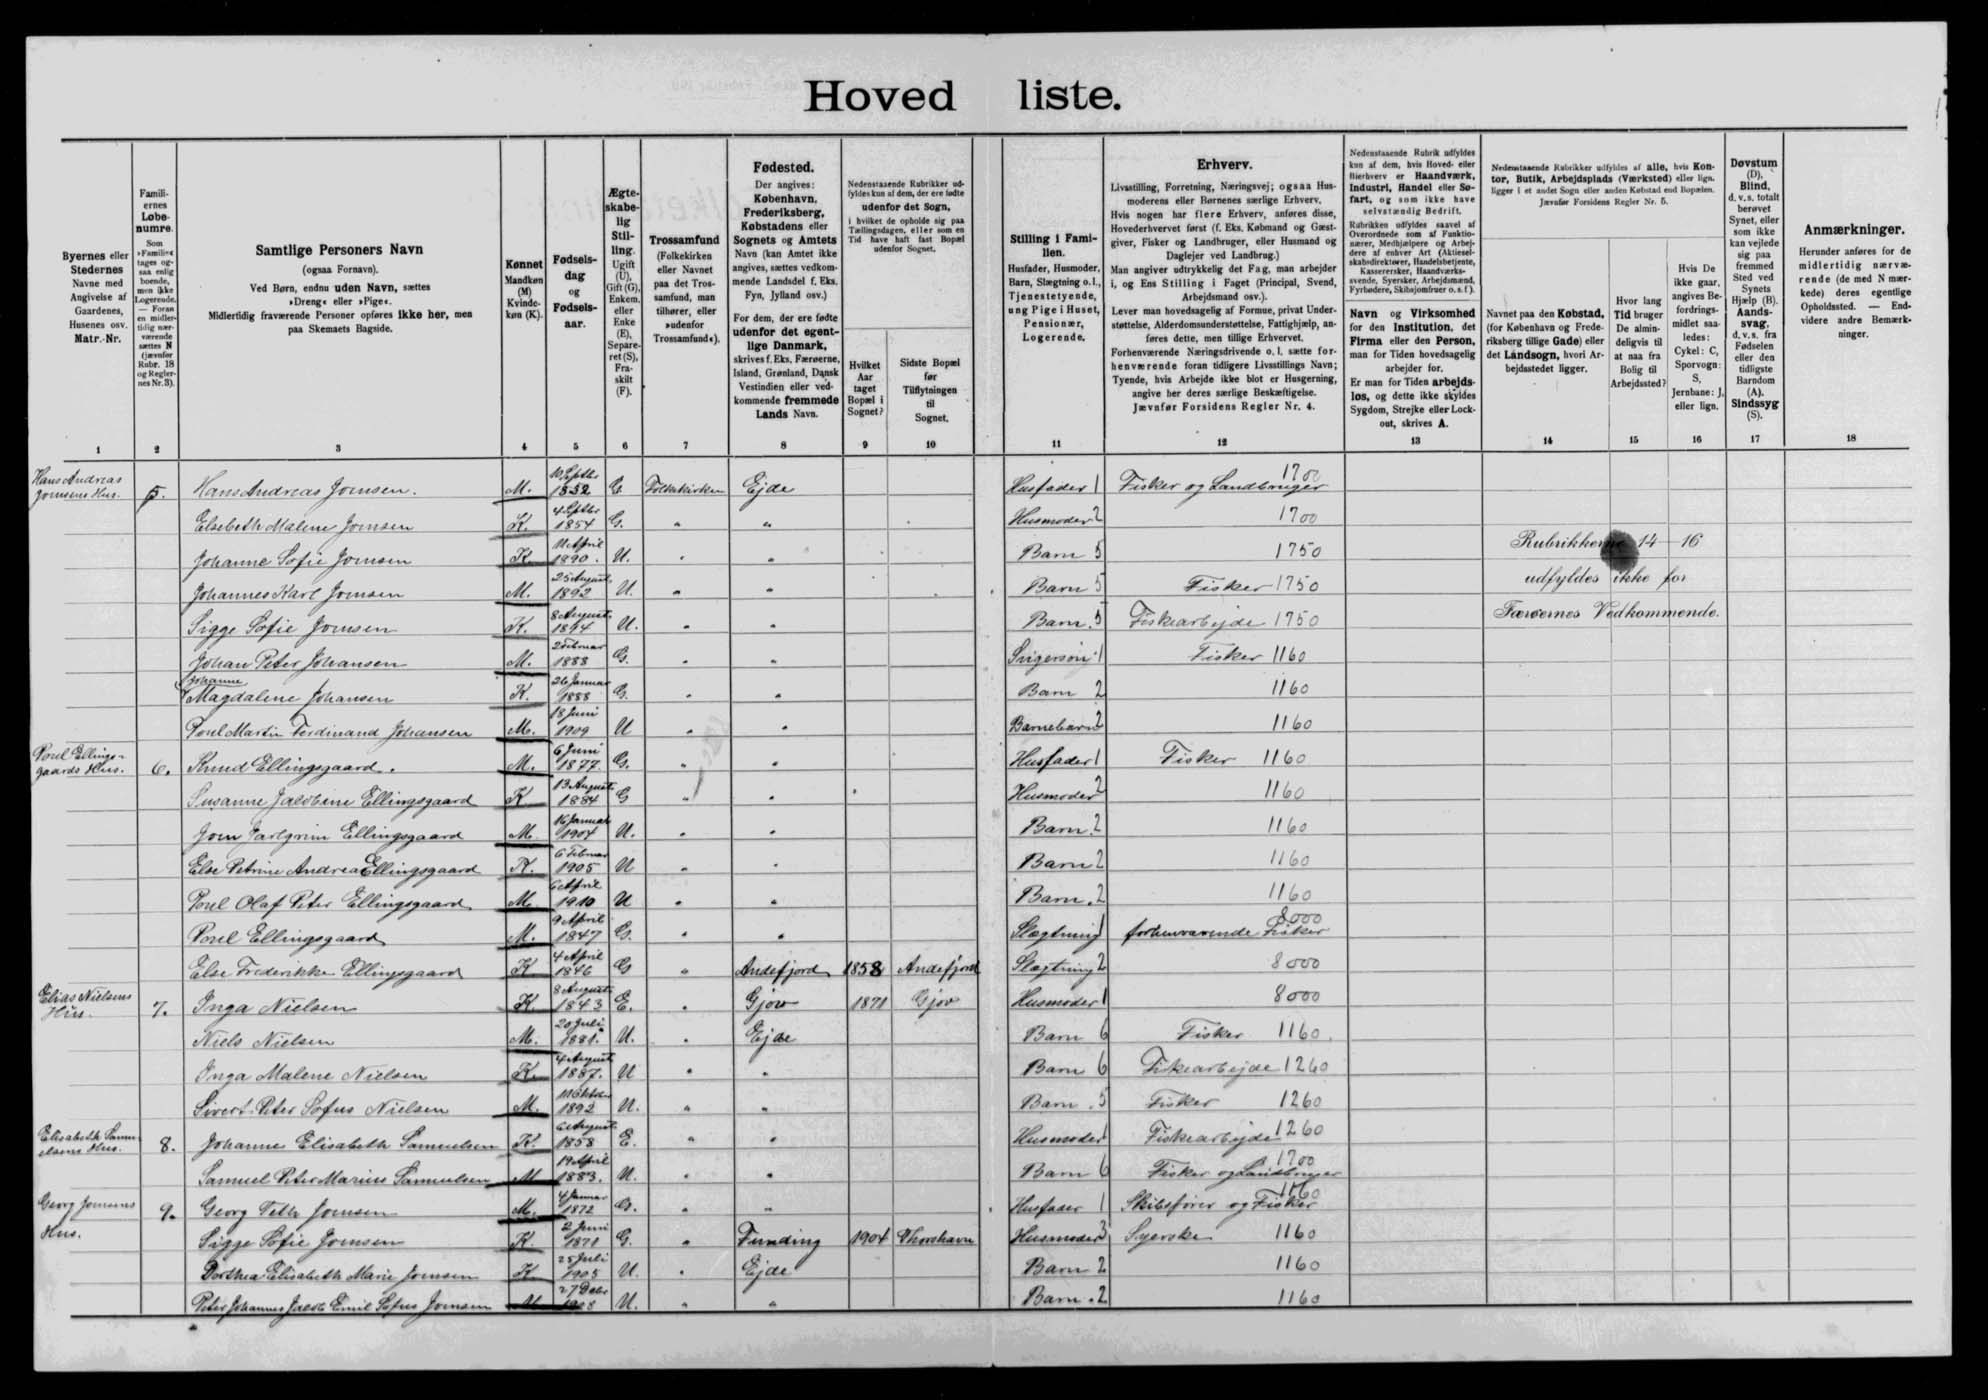 Hoved liste.
Byernes eller
Stedernes
Navne med
Angivelse af
Gaardenes,
Husenes osv.
Matr.-Nr.
Famili-
ernes
Løbe-
numre.
Som
»Familie«
tages og-
saa enlig
boende,
men ikke
Logerende.
— Foran
en midler-
tidig nær-
værende
sættes N
(jævnfør
Rubr. 18
og Regler-
nes Nr. 3).
Samtlige Personers Navn
(ogsaa Fornavn).
Ved Børn, endnu uden Navn, sættes
»Dreng« eller »Pige«.
Midlertidig fraværende Personer opføres ikke her, men
paa Skemaets Bagside.
Kønnet
Mandkøn
(M)
Kvinde-
køn (K).
Fødsels-
dag
og
Fødsels-
aar.
Ægte-
skabe-
lig
Stil-
ling.
Ugift
(U),
Gift (G),
Enkem.
eller
Enke
(E),
Separe-
ret (S),
Fra-
skilt
(F).
Trossamfund
(Folkekirken
eller Navnet
paa det Tros-
samfund, man
tilhører, eller
»udenfor
Trossamfund«).
Fødested.
Der angives:
København,
Frederiksberg,
Købstadens eller
Sognets og Amtets
Navn (kan Amtet ikke
angives, sættes vedkom-
mende Landsdel f. Eks.
Fyn, Jylland osv.)
For dem, der ere fødte
udenfor det egent-
lige Danmark,
skrives f. Eks. Færøerne,
Island, Grønland, Dansk
Vestindien eller ved-
kommende fremmede
Lands Navn.
Nedenstaaende Rubrikker ud-
fyldes kun af dem, der ere fødte
udenfor det Sogn,
i hvilket de opholde sig paa
Tællingsdagen, eller som en
Tid have haft fast Bopæl
udenfor Sognet.
Hvilket
Aar
taget
Bopæl i
Sognet?
Sidste Bopæl
før
Tilflytningen
til
Sognet.
Stilling i Fami-
lien.
Husfader, Husmoder,
Barn, Slægtning o. l.,
Tjenestetyende,
ung Pige i Huset,
Pensionær,
Logerende.
Erhverv.
Livsstilling, Forretning, Næringsvej; ogsaa Hus-
moderens eller Børnenes særlige Erhverv.
Hvis nogen har flere Erhverv, anføres disse,
Hovederhvervet først (f. Eks. Købmand og Gæst-
giver, Fisker og Landbruger, eller Husmand og
Daglejer ved Landbrug.)
Man angiver udtrykkelig det Fag, man arbejder
i, og Ens Stilling i Faget (Principal, Svend,
Arbejdsmand osv.).
Lever man hovedsagelig af Formue, privat Under-
støttelse, Alderdomsunderstøttelse, Fattighjælp, an-
føres dette, men tillige Erhvervet.
Forhenværende Næringsdrivende o. l. sætte for-
henværende foran tidligere Livsstillings Navn;
Tyende, hvis Arbejde ikke blot er Husgerning,
angive her deres særlige Beskæftigelse.
Jævnfør Forsidens Regler Nr. 4.
Nedenstaaende Rubrik udfyldes
kun af dem, hvis Hoved- eller
Bierhverv er Haandværk,
Industri, Handel eller Sø-
fart, og som ikke have
selvstændig Bedrift.
Rubrikken udfyldes saavel af
Overordnede som af Funktio-
nærer, Medhjælpere og Arbej-
dere af enhver Art (Aktiesel-
skabsdirektører, Handelsbetjente,
Kassererersker, Haandværks-
svende, Syersker, Arbejdsmænd,
Fyrbødere, Skibsjomfruer o. s. f.).
Navn og Virksomhed
for den Institution, det
Firma eller den Person,
man for Tiden hovedsagelig
arbejder for.
Er man for Tiden arbejds-
løs, og dette ikke skyldes
Sygdom, Strejke eller Lock-
out, skrives A.
Nedenstaaende Rubrikker udfyldes af alle, hvis Kon-
tor, Butik, Arbejdsplads (Værksted) eller lign.
ligger i et andet Sogn eller anden Købstad end Bopælen.
Jævnfør Forsidens Regler Nr. 5.
Navnet paa den Købstad,
(for København og Frede-
riksberg tillige Gade) eller
det Landsogn, hvori Ar-
bejdsstedet ligger.
Hvor lang
Tid bruger
De almin-
deligvis til
at naa fra
Bolig til
Arbejdssted?
Hvis De
ikke gaar,
angives Be-
fordrings-
midlet saa-
ledes:
Cykel: C,
Sporvogn:
S,
Jernbane: J,
eller lign.
Døvstum
(D),
Blind,
d. v. s. totalt
berøvet
Synet, eller
som ikke
kan vejlede
sig paa
fremmed
Sted ved
Synets
Hjælp (B).
Aands-
svag,
d. v. s. fra
Fødselen
eller den
tidligste
Barndom
(A).
Sindssyg
(S).
Anmærkninger.
Herunder anføres for de
midlertidig nærvæ-
rende (de med N mær-
kede) deres egentlige
Opholdssted. — End-
videre andre Bemærk-
ninger.
1 2 3 4 5 6 7 8 9 10 11 12 13 14 15 16 17 18
Hans Andreas Joensens Hus. 5. Hans Andreas Joensen. M. 10 Septbr 1852 G Folkekirken Ejde Husfader 1 Fisker og Landbruger 1700
Elsebeth Malene Joensen K. 4 Septbr 1854 G. " " Husmoder 2 1700
Johanne Sofie Joensen K. 11 April 1890. U. " " Barn 5 1750
Johannes Karl Joensen M. 25 August 1892 U. " " Barn 5 Fisker 1750
Sigge Sofie Joensen K. 8 August 1894 U. " " Barn. 5 Fiskearbejde 1750
Rubrikkerne 14-16
udfyldes ikke for
Færøernes Vedkommende.
Johan Peter Johansen M. 1888 G. " " Svigersøn 1 Fisker 1160
Johanne
Magdalene Johansen K. 26 Januar 1888 G. " " Barn 2 1160
Poul Martin Ferdinand Johansen M. 18 Juni 1909 U " " Barnebarn 2 1160
Poul Ellings-gaards Hus. 6. Knud Ellingsgaard. M. 6 Juni 1877. G. " " Husfader 1 Fisker 1160
Susanne Jacobine Ellingsgaard K 13 August 1884 G " " Husmoder 2 1160
Joen Jartgrim Ellingsgaard M. 16 Januar 1904 U. " " Barn. 2 1160
Else Petrine Andrea Ellingsgaard K. 6 Februar 1905 U " " Barn 2 1160
Poul Olaf Peter Ellingsgaard M. 6 April 1910 U " " Barn. 2 1160
Poul Ellingsgaard M. 9 April 1847 G. " " Slægtning 1 forhenværende Fisker 8000
Else Frederikke Ellingsgaard K 4 April 1846 G " Andefjord 1858 Andefjord Slægtning 2 8000
Elias Nielsens Hus. 7. Inga Nielsen K 8 August 1843 E. " Gjov 1871 Gjov Husmoder 1 8000
Niels Nielsen M. 20 Juli 1881. U. " Ejde Barn 6 Fisker 1160.
Inga Malene Nielsen K. 4 August 1887. U " " Barn 6 Fiskearbejde 1260
Sivert Peter Sofus Nielsen M. 11 Oktober 1892 U. " " Barn. 5 Fisker 1260
Elisabeth Samuelsens Hus. 8. Johanne Elisabeth Samuelsen K. 6 August 1858 E. " " Husmoder 1 Fiskearbejde 1260
Samuel Peter Marius Samuelsen M 19 April 1883. U. " " Barn 6 Fisker og Landbruger 1700
Georg Joensens Hus. 9. Georg Feth Joensen M. 4 Januar 1872 G. " " Husfader 1 Skibsfører og Fisker 1160
Sigge Sofie Joensen K. 2 Juni 1871 G. " Funding 1904 Thorshavn Husmoder 3 Syerske 1160
Dorthea Elisabeth Marie Joensen K 25 Juli 1905 U. " Ejde Barn 2 1160
Peter Johannes Jacob Emil Sofus Joensen M 27 Debr 1908 U. " " Barn. 2 1160